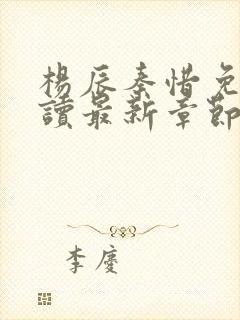 楊辰秦惜免
讀最新章節
李慶